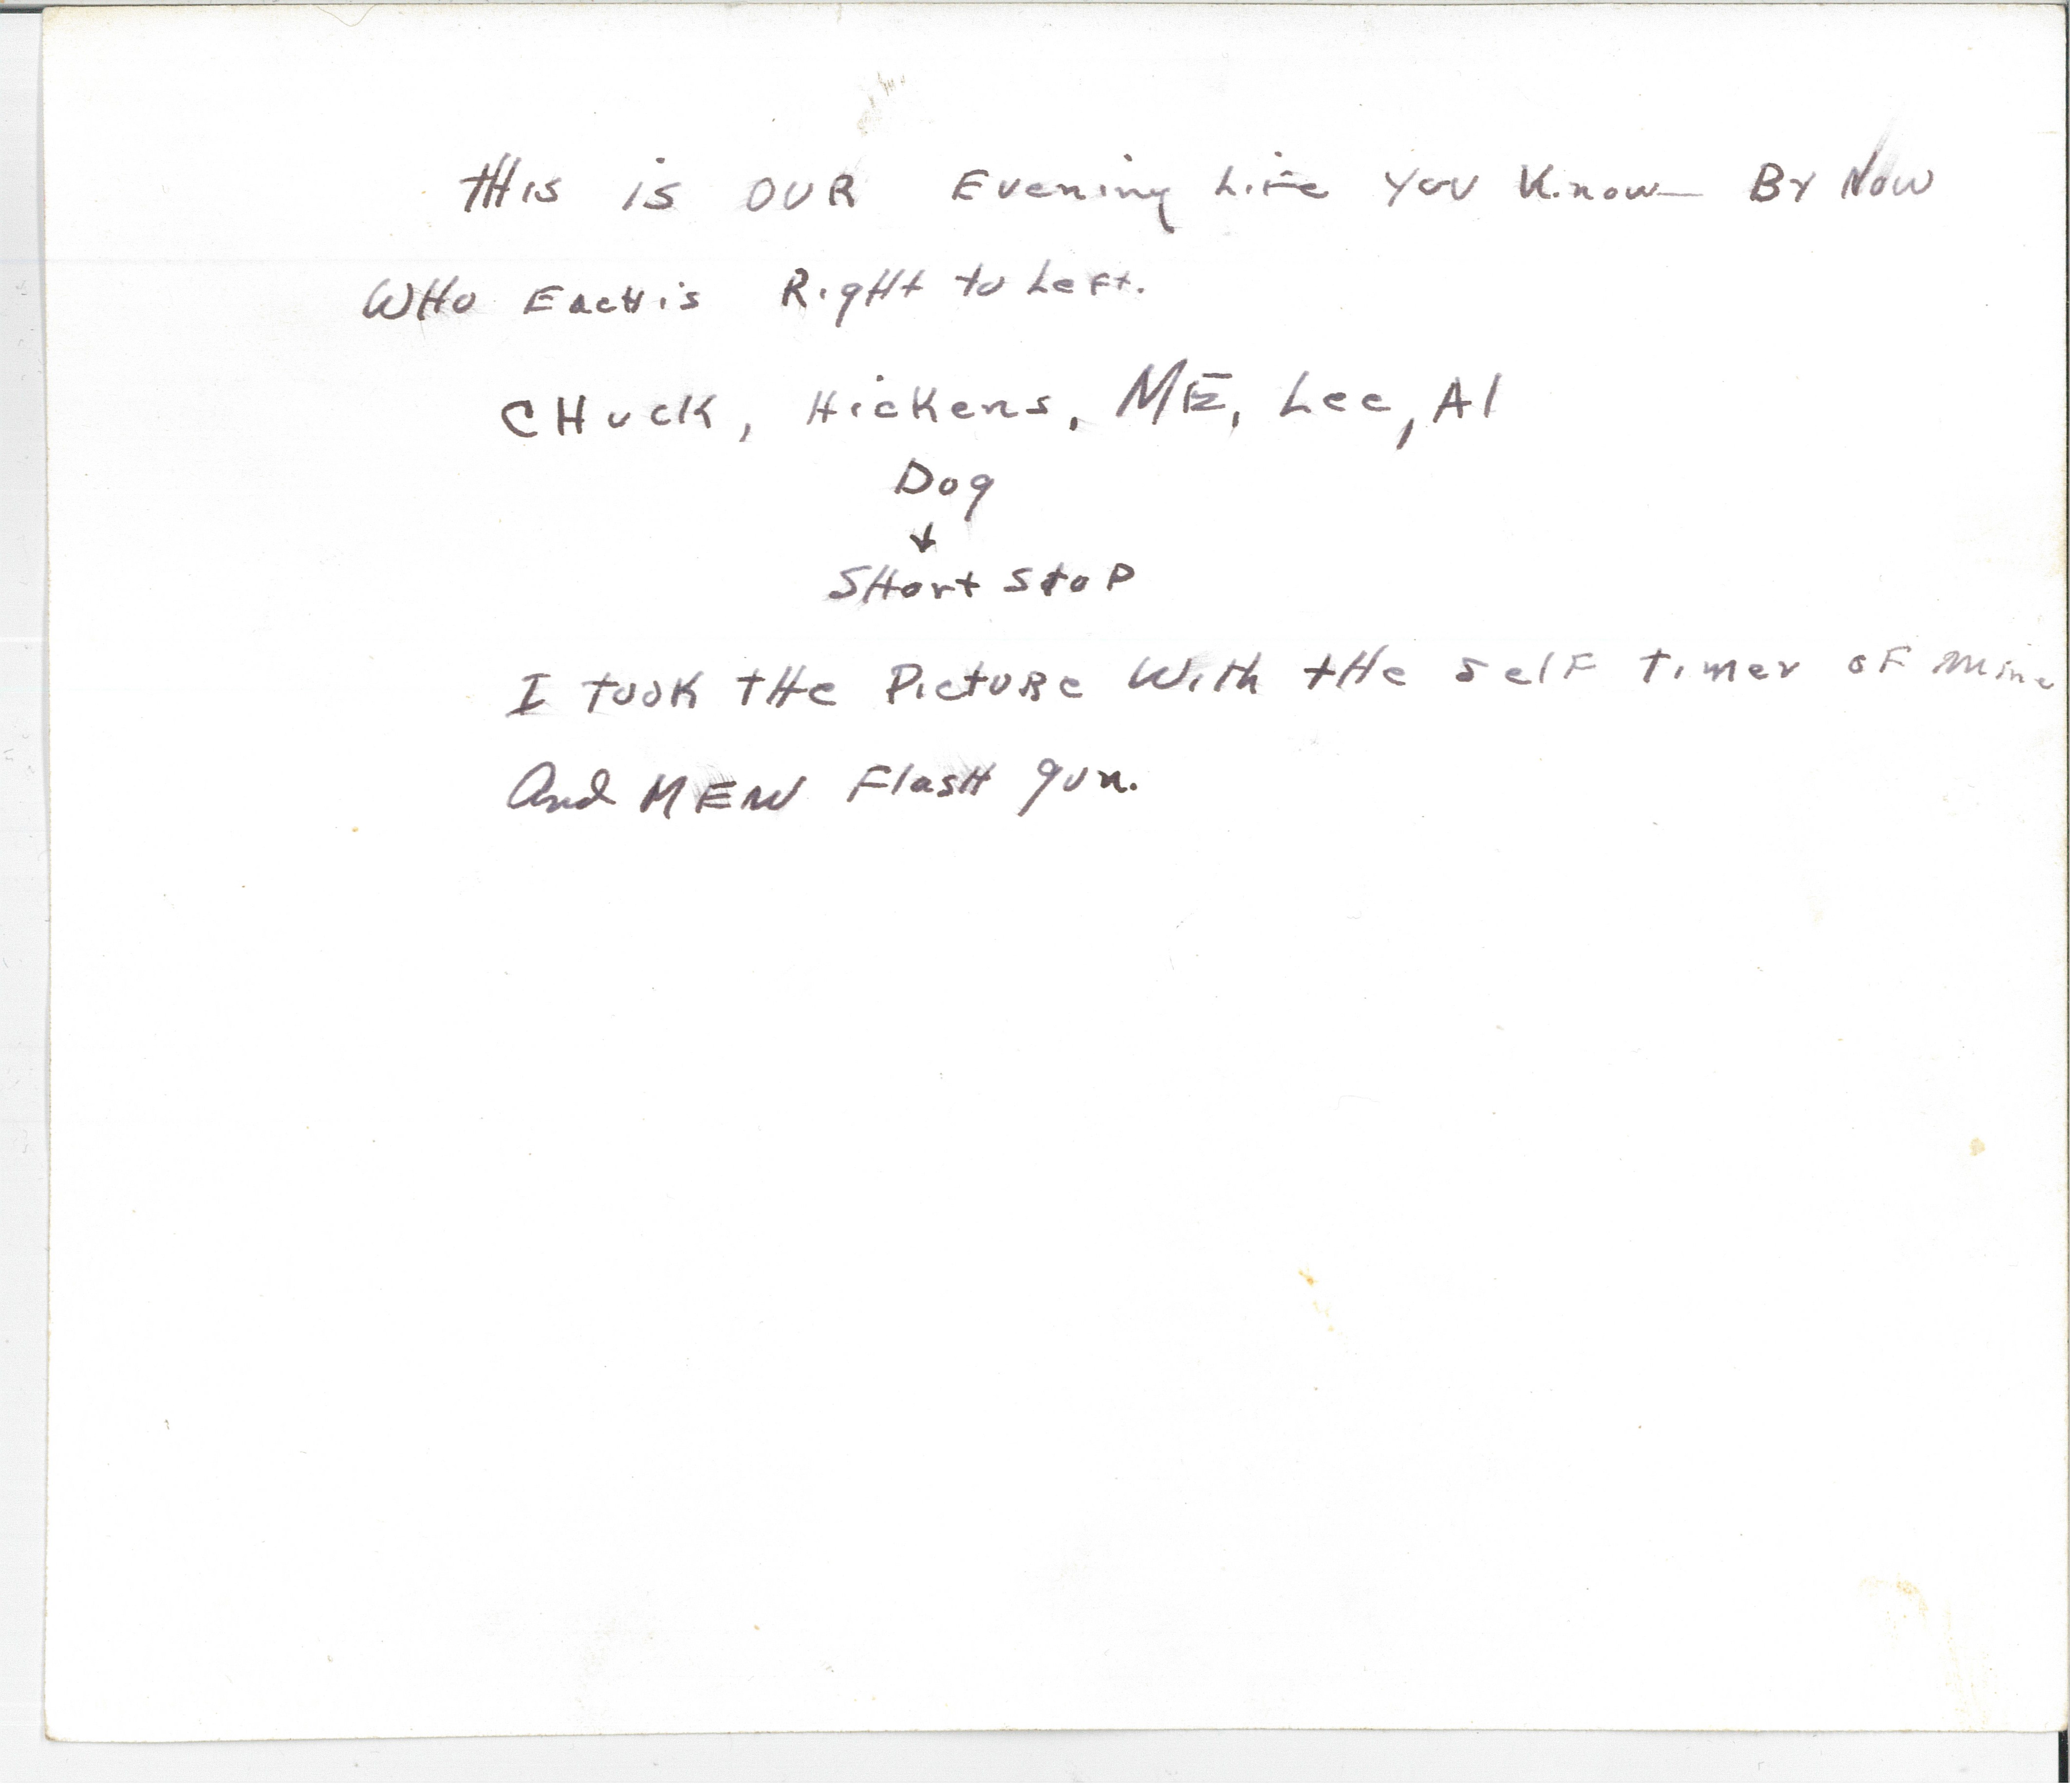 THis is OUR Evening Life You Know By Now
WHo EacH is RigHt to Left.
CHucK, HicKens, ME, Lee, Al
Dog
↓
SHort stoP
I took tHe PictuRe With tHe self timer oF mine
And NEW FlasH gun.